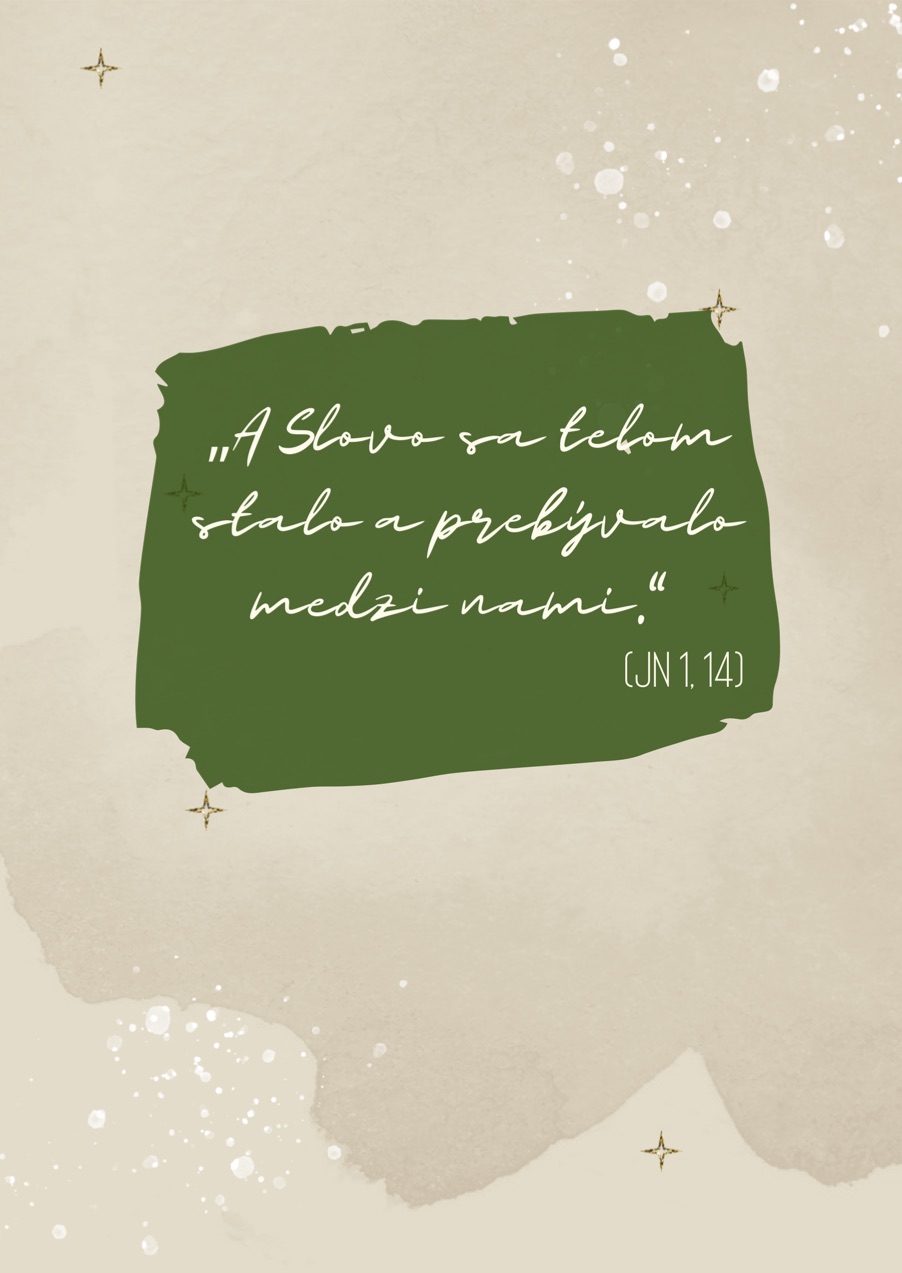 „A Slovo sa telom
stalo a prebývalo
medzi nami.“
(JN 1, 14)